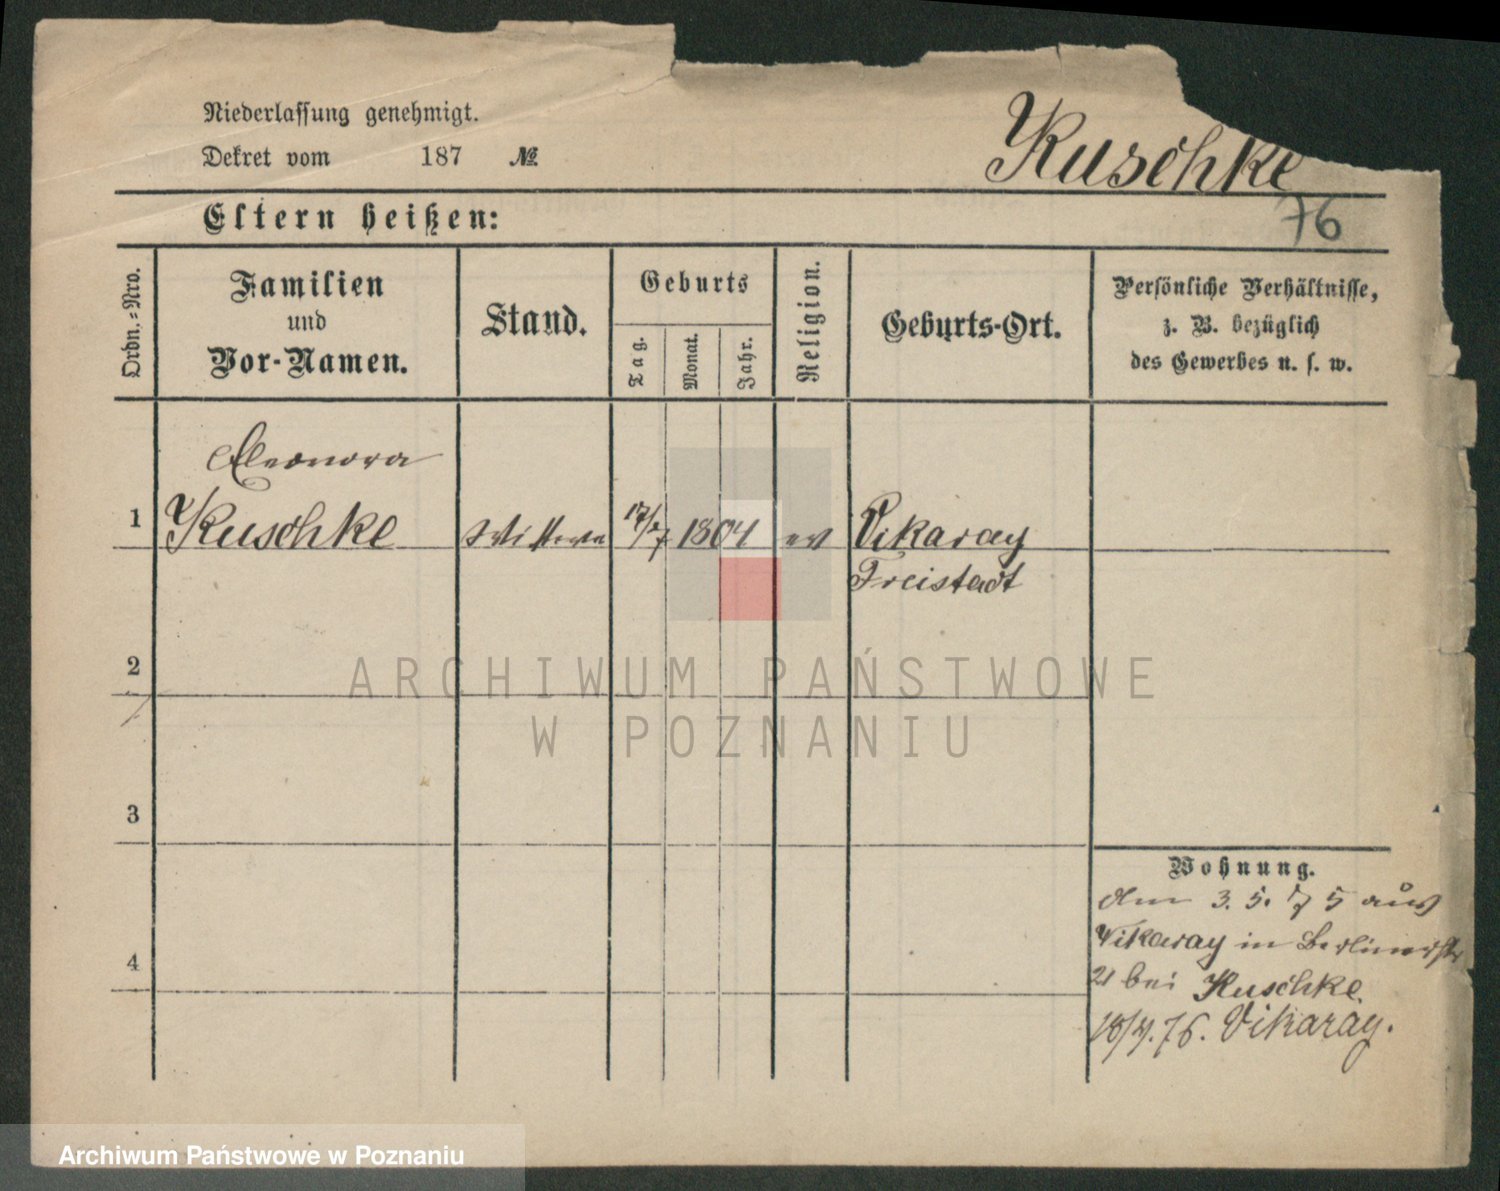 Niederlassung genehmigt.
Dekret vom 187 №
Kuschke
Eltern heißen:
76
Ordn.-Nro.
Familien
und
Vor-Namen.
Stand.
Geburts
Tag.
Monat.
Jahr.
Religion.
Geburts-Ort.
Persönliche Verhältnisse,
z. B. bezüglich
des Gewerbes u. s. w.
Eleonora
1 Kuschke Wittwe 17/7 1804 ev Vikaray
Freistadt
2
ARCHIWUM PAŃSTWOWE
W POZNANIU
3
Wohnung.
Am 3. 5. 75 aus
Vikaray in Berlinerstr
21 bei Kuschke
4
18/4. 76. Vikaray.
Archiwum Państwowe w Poznaniu